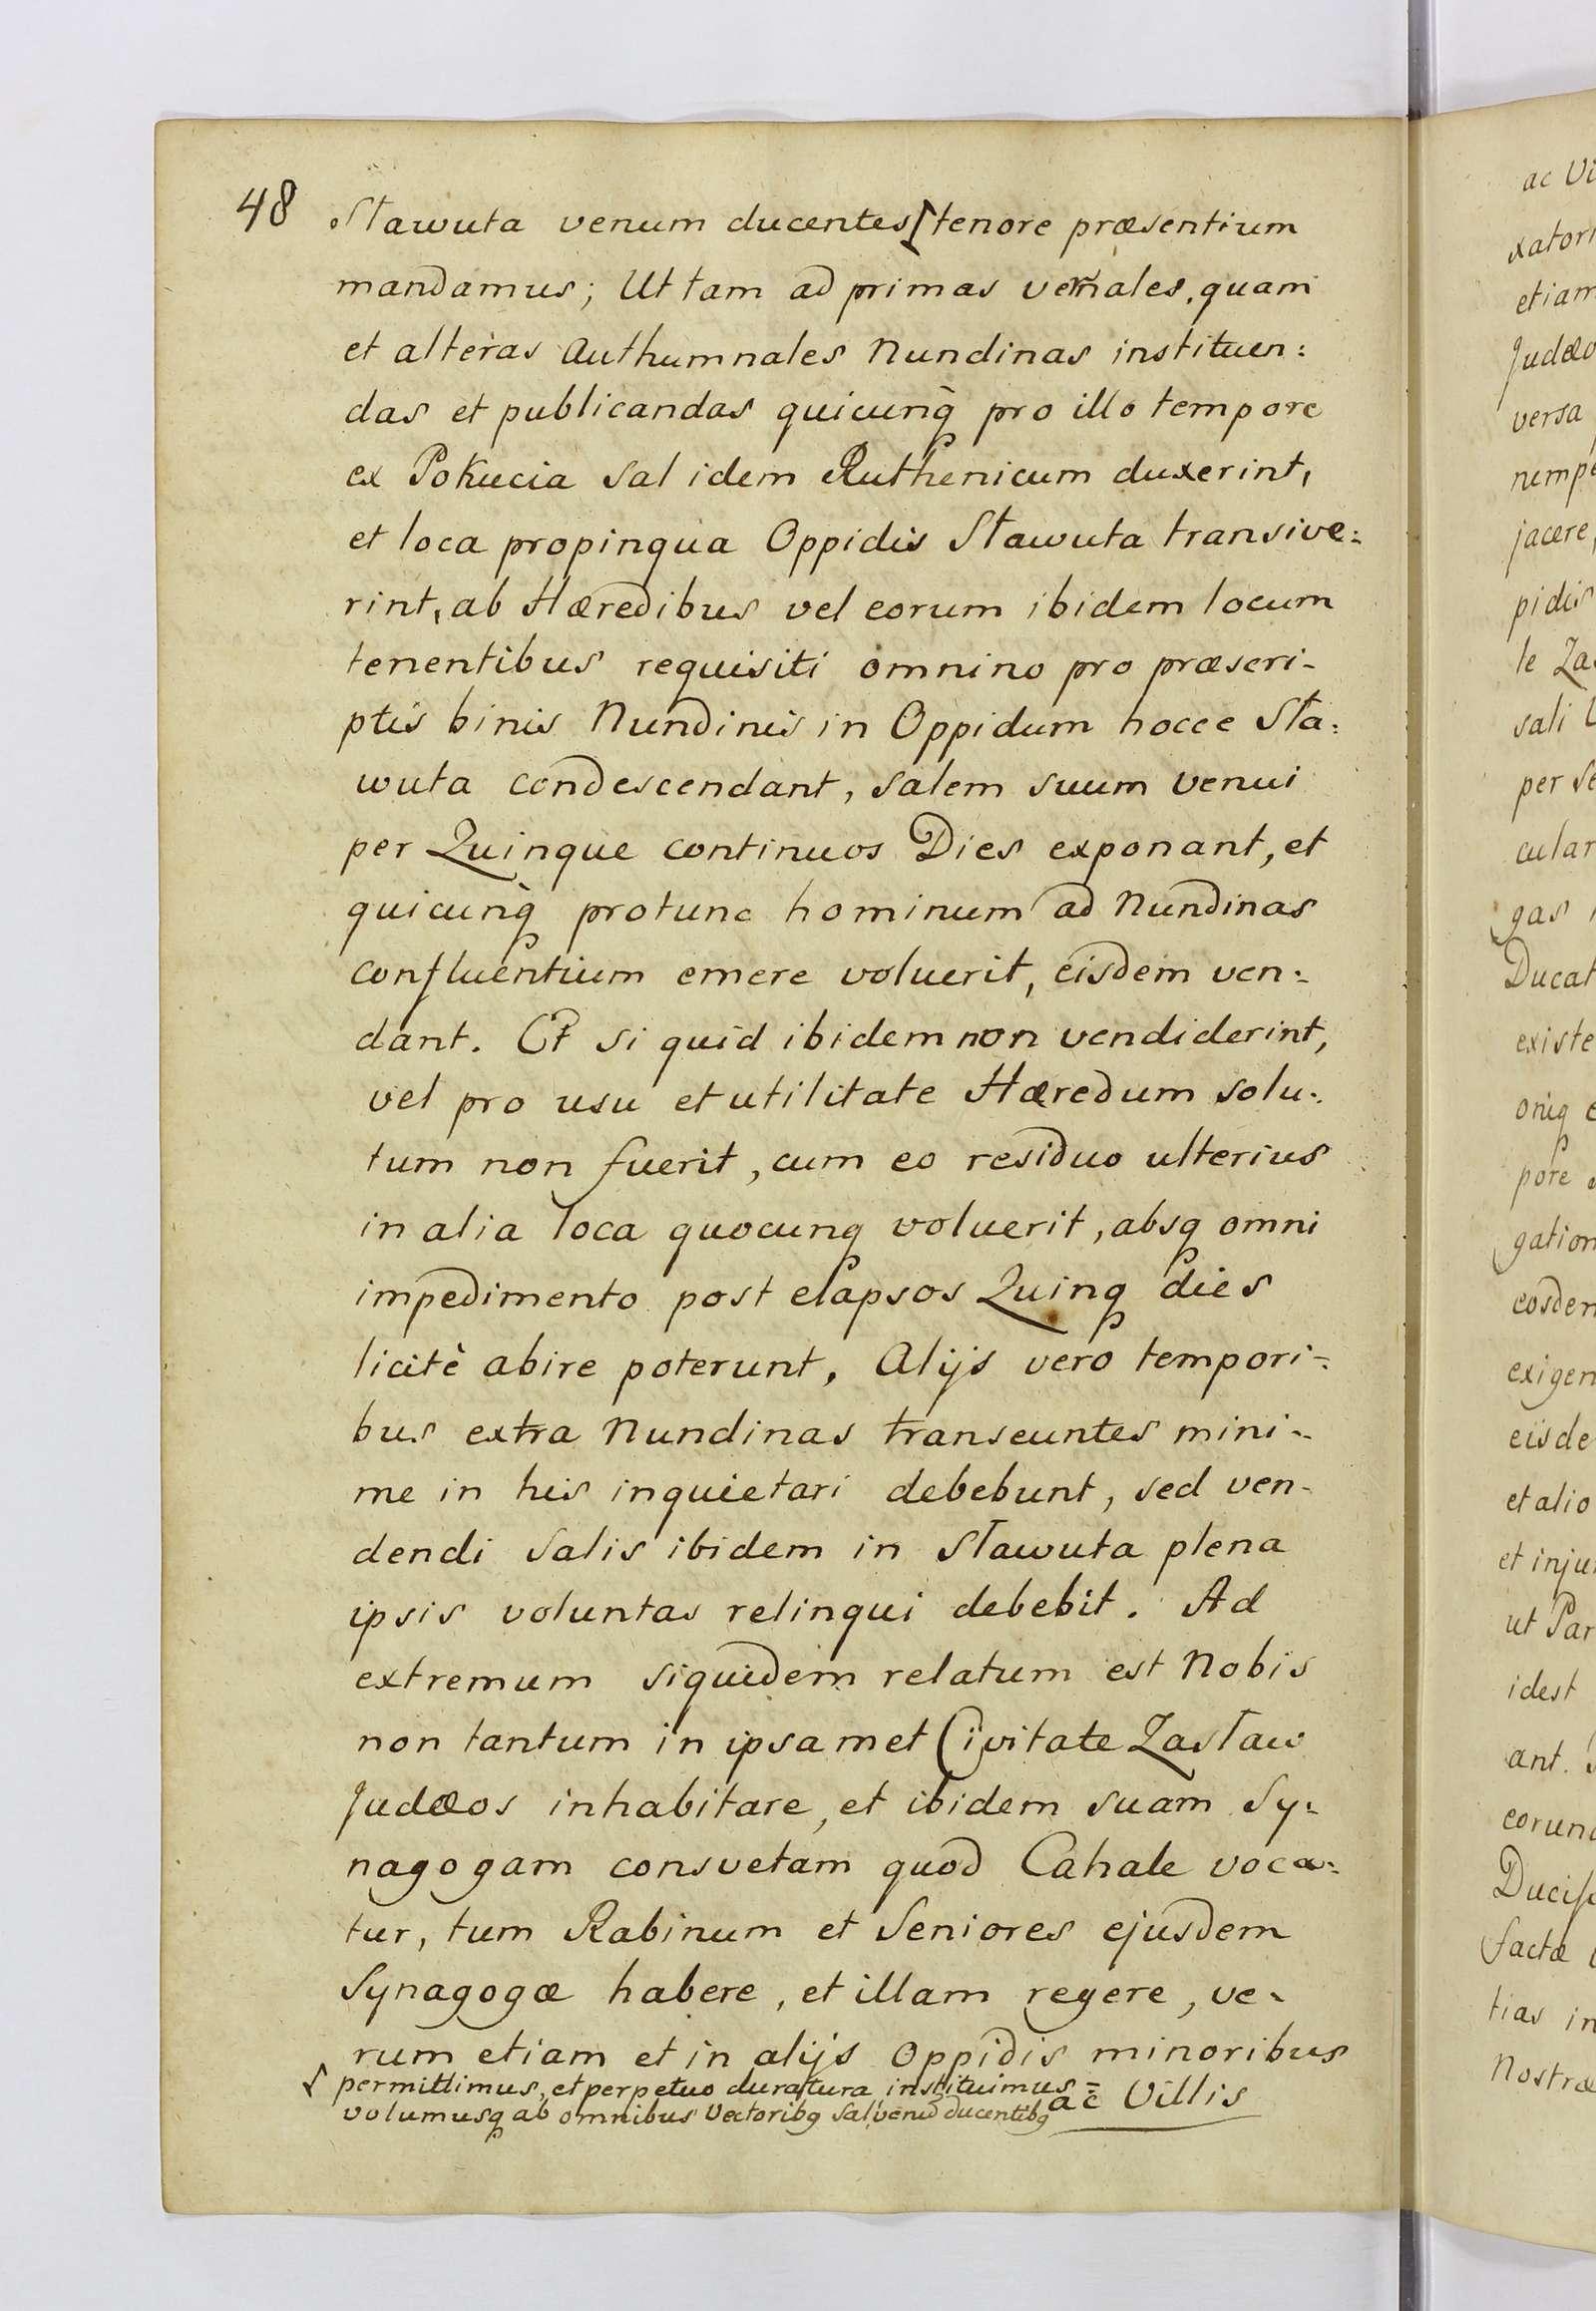 48
Sławuta venum ducentes ſ tenore præsentium
mandamus; Ut tam ad primas vernales, quam
et alteras Authumnales Nundinas instituen:
das et publicandas quicunq̀ pro illo tempore
ex Pokucia Sal idem Ruthenicum duxerint,
et loca propinqua Oppidis Sławuta transive:
rint, ab Hæredibus vel eorum ibidem locum
tenentibus requisiti omnino pro præscri-
ptis binis Nundinis in Oppidum hocce Sła:
wuta condescendant, Salem suum venui
per Quinque continuos Dies exponant, et
quicunq̀ protunc hominum ad Nundinas
confluentium emere voluerit, eisdem ven:
dant. Et si quid ibidem non vendiderint,
vel pro usu et utilitate Hæredum solu:
tum non fuerit, cum eo residuo ulterius
in alia loca quocunq voluerit, absq omni
impedimento post elapsos Quinq dies
licitè abire poterunt, Alijs vero tempori:
bus extra Nundinas transeuntes mini:
me in his inquietari debebunt, sed ven-
dendi Salis ibidem in Sławuta plena
ipsis voluntas relinqui debebit. Ad
extremum siquidem relatum est Nobis
non tantum in ipsamet Civitate Zasław
Judæos inhabitare, et ibidem suam Sy:
nagogam consvetam quod Cahale voca:
tur, tum Rabinum et Seniores ejusdem
Synagogæ habere, et illam regere, ve-
rum etiam et in alijs Oppidis minoribus
ſ permittimus, et perpetuo duratura instituimus =
volumusq ab omnibus Vectoribq Sal venũ ducentibq
ac Villis
ac Vi
xatori
etiam
Judæo
versa
nempe
jacere,
pidis
le Za
sali
per se
cular
gas
Ducat
existe
pore
gation
eosdem
exigen
eisde
et alio
et inju
ut Par
idest
ant.
eorund
factæ
tias in
Nostræ